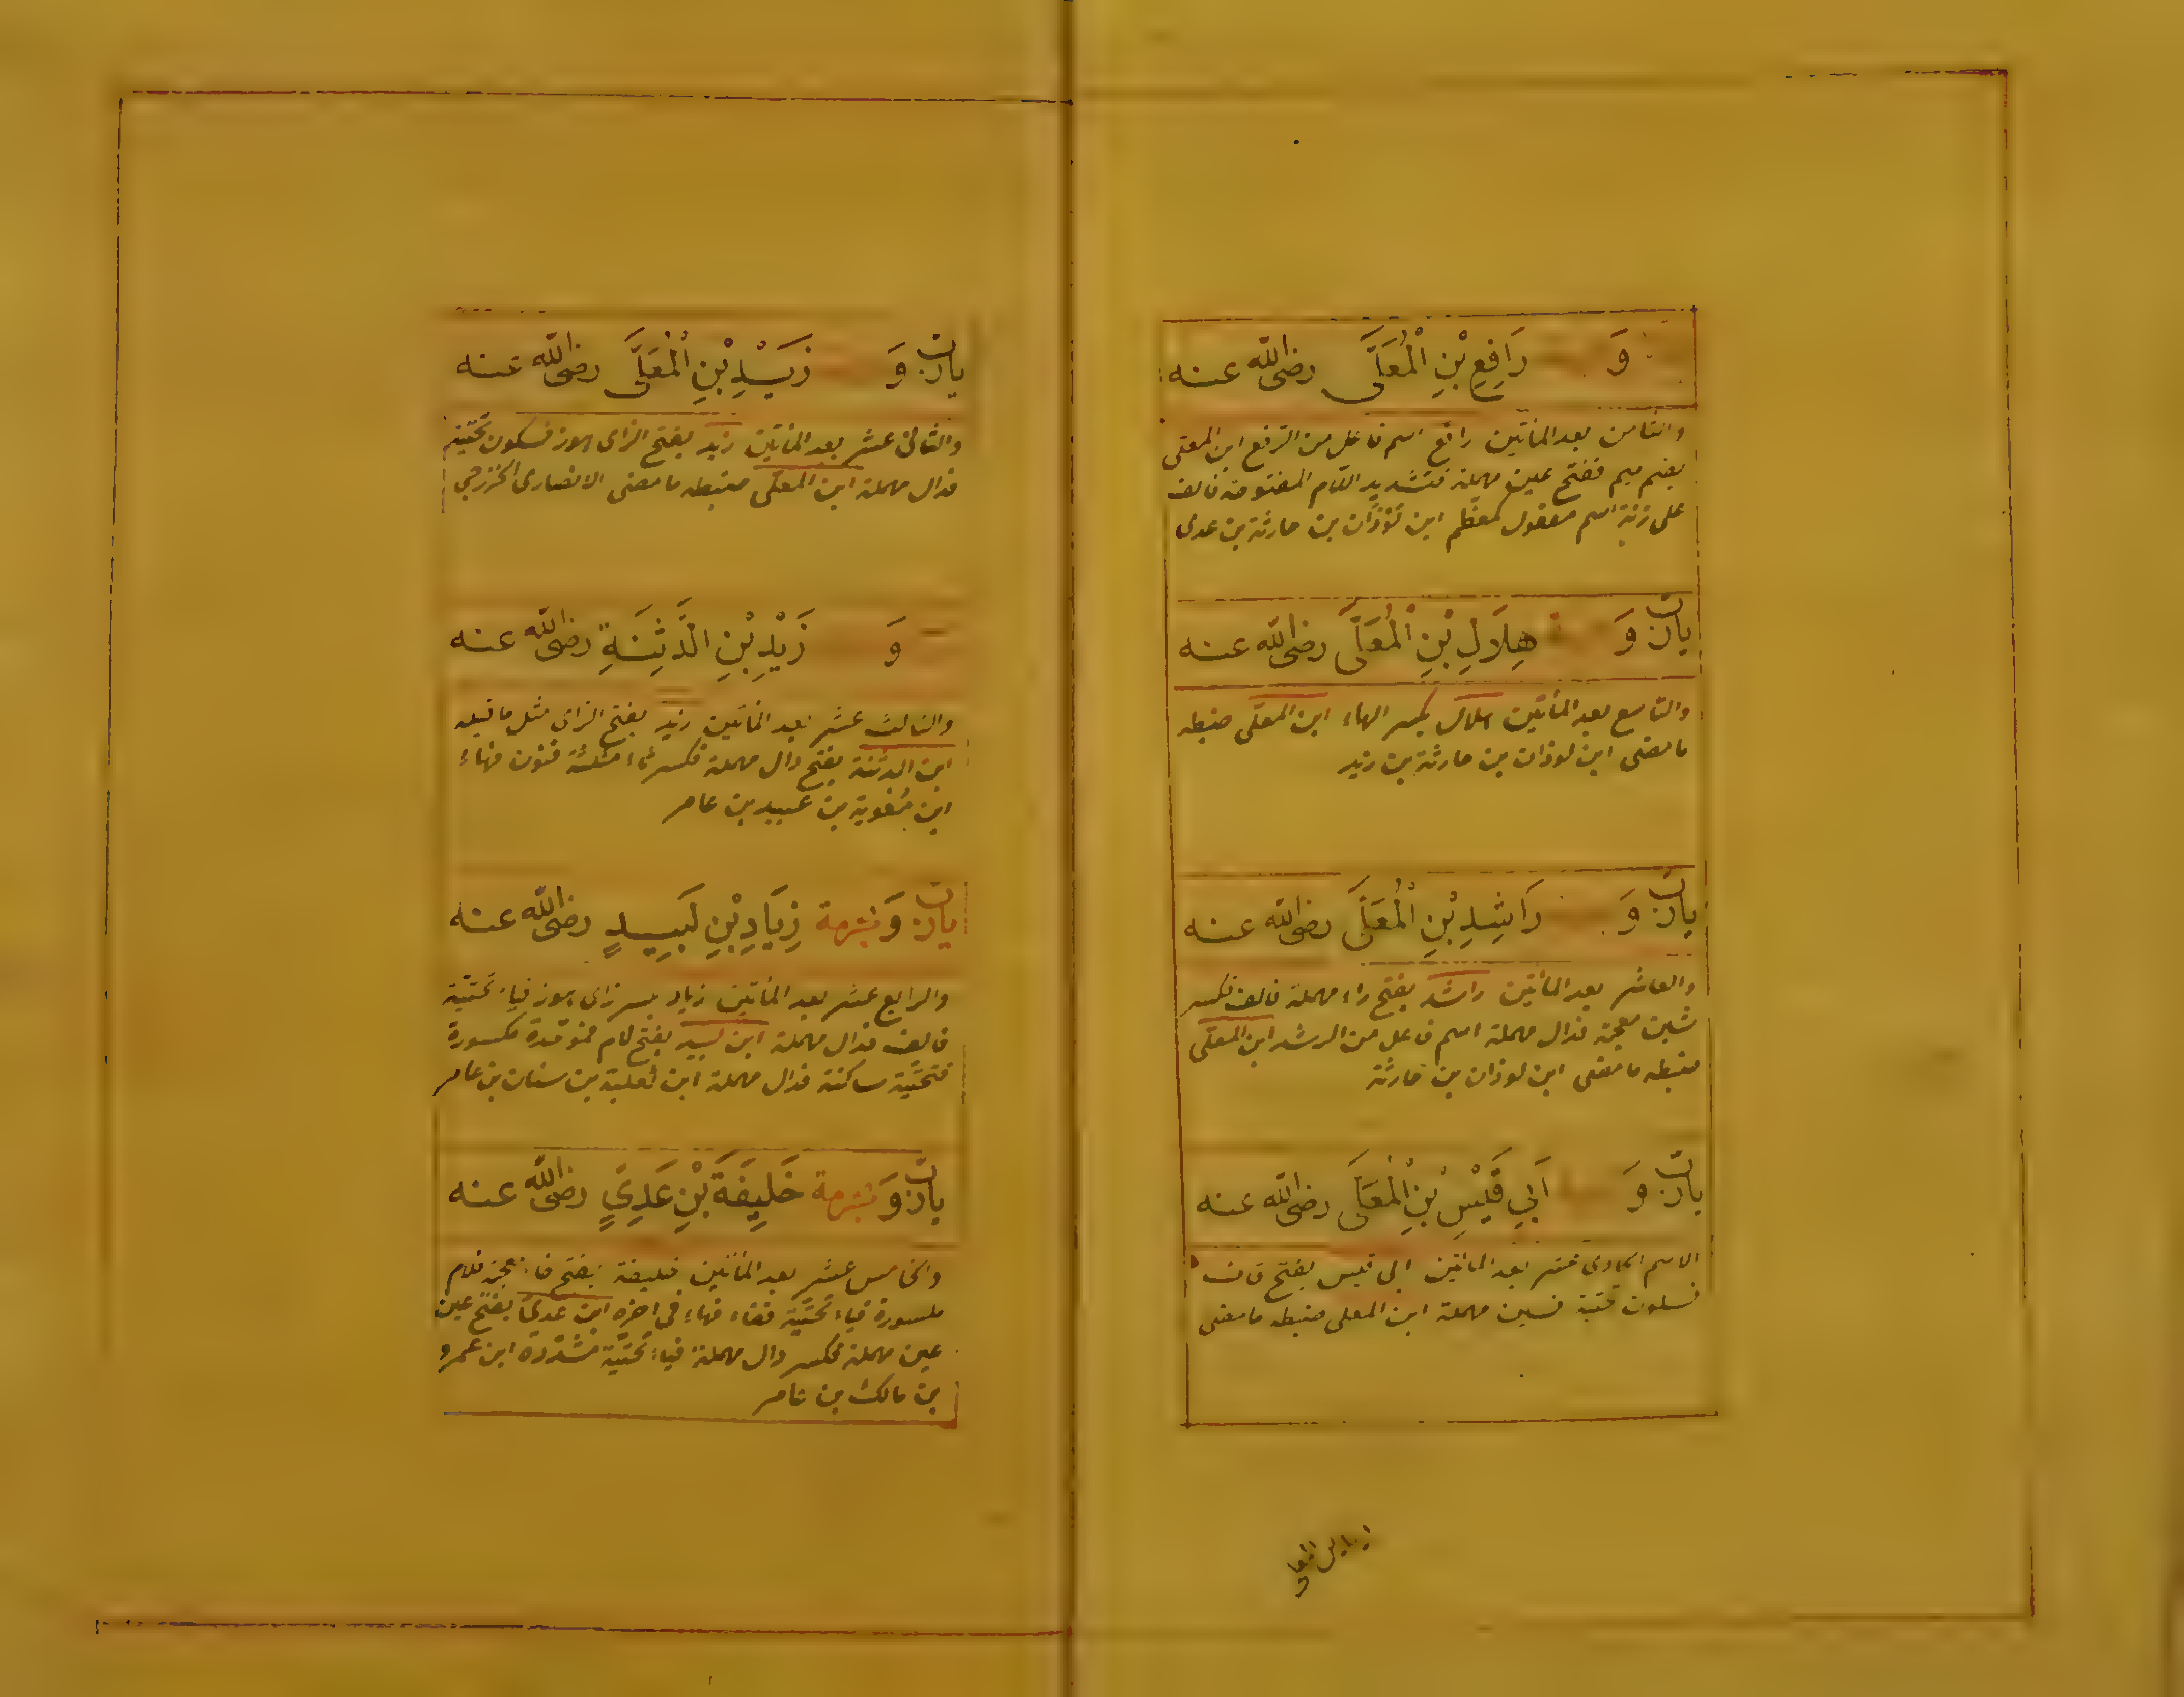 وَ رَافِعِ بْنِ الْمُعَلَّى رضى الله عنه
والثامن بعد المأتين رافع اسم فاعل من الرفع ابن المعلى
بضم ميم ففتح عين مهملة فتشديد اللام المفتوحة فالف
على زنة اسم مفعول كمعظم ابن لوذان بن حارثة بن عدى
يارب وَ هِلَالِ بْنِ الْمُعَلَّى رضى الله عنه
والتاسع بعد المأتين هلال بكسر الهاء ابن المعلى ضبطه
ما مضى ابن لوذان بن حارثة بن زيد
يارب وَ رَاشِدِ بْنِ الْمُعَلَّى رضى الله عنه
والعاشر بعد المأتين راشد بفتح راء مهملة فالف فكسر
شين معجمة فدال مهملة اسم فاعل من الرشد ابن المعلى
ضبطه ما مضى ابن لوذان بن حارثة
يارب وَ اَبِي قَيْسِ بْنِ الْمُعَلَّى رضى الله عنه
الاسم الحادى عشر بعد المأتين ابى قيس بفتح قاف
فسكون تحتية فسين مهملة ابن المعلى ضبطه ما مضى
يارب وَ زَيْدِ بْنِ الْمُعَلَّى رضى الله عنه
والثانى عشر بعد المأتين زيد بفتح الزاى هوز فسكون تحتية
فدال مهملة ابن المعلى ضبطه ما مضى الانصارى الخزرجى
وَ زَيْدِ بْنِ الدَّثِنَةِ رضى الله عنه
والثالث عشر بعد المأتين زيد بفتح الزاى مثل ما قبله
ابن الدثنة بفتح دال مهملة فكسر ثاء مثلثة فنون فهاء
ابن معوية بن عبيد بن عامر
يارب وَ بحرمة زِيَادِ بْنِ لَبِيدٍ رضى الله عنه
والرابع عشر بعد المأتين زياد بكسر زاى هوز فياء تحتية
فالف فدال مهملة ابن لبيد بفتح لام فموحدة مكسورة
فتحتية ساكنة فدال مهملة ابن ثعلبة بن سنان بن عامر
يارب وَ بحرمة خَلِيفَةَ بْنِ عَدِيٍّ رضى الله عنه
والخامس عشر بعد المأتين خليفة بفتح خاء معجمة فلام
مكسورة فياء تحتية ففاء فهاء فى اخره ابن عدى بفتح عين
عين مهملة فكسر دال مهملة فياء تحتية مشددة ابن عمرو
بن مالك بن عامر